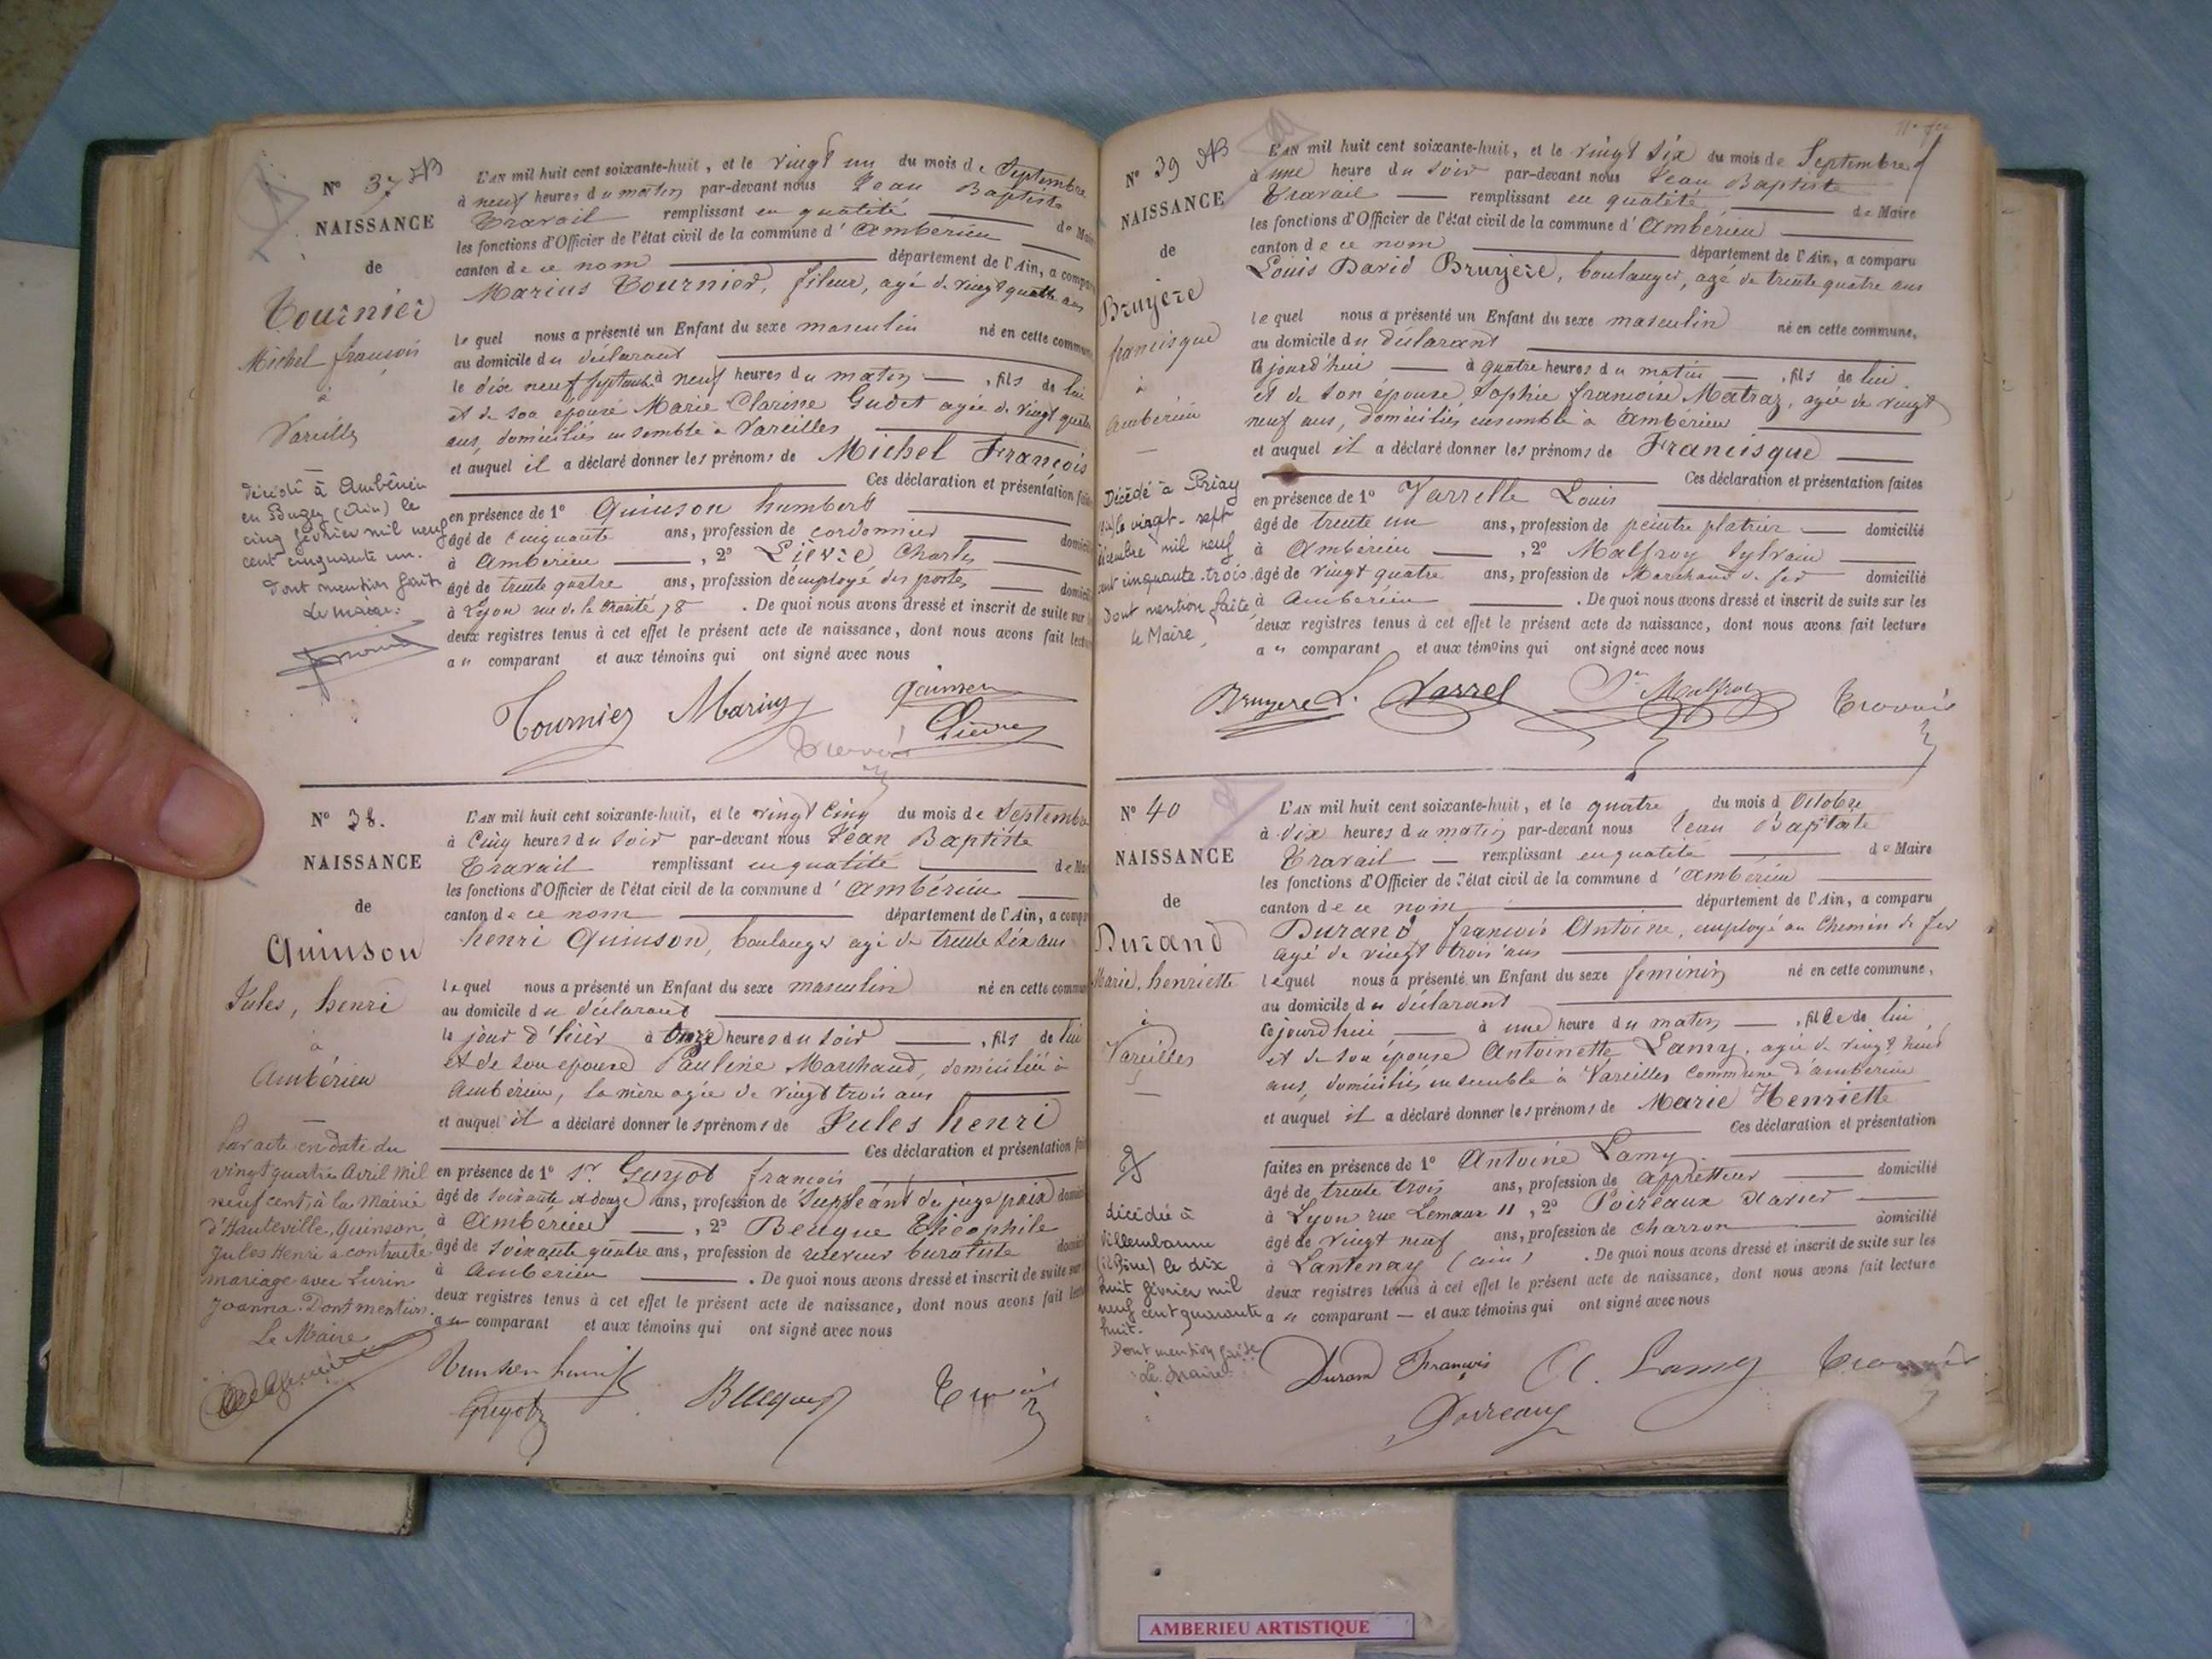 N° 37
NAISSANCE
de
Tournier
Michel françois
à
Vareilles
décédé à Ambérieu
en Bugey (Ain) le
cinq février mil neuf
cent cinquante un.
Dont mention faite
Le maire.
L'AN mil huit cent soixante-huit, et le vingt un du mois de Septembre
à neuf heures du matin par-devant nous Jean Baptiste
Travail remplissant en qualité de Maire
les fonctions d'Officier de l'état civil de la commune d'Ambérieu
canton de ce nom département de l'Ain, a comparu
Marius Tournier, fileur, agé de vingt quatre ans
lequel nous a présenté un Enfant du sexe masculin né en cette commune
au domicile du déclarant
le dix neuf Septembre à neuf heures du matin, fils de lui
et de son épouse Marie Clarisse Gudet agée de vingt quatre
ans, domiciliés ensemble à Vareilles
et auquel il a déclaré donner les prénoms de Michel François
Ces déclaration et présentation faites
en présence de 1° Quinson humbert
âgé de cinquante ans, profession de cordonnier domicilié
à Ambérieu, 2° Lièvre Charles
âgé de trente quatre ans, profession d'employé des postes domicilié
à Lyon rue de la Charité 78. De quoi nous avons dressé et inscrit de suite sur les
deux registres tenus à cet effet le présent acte de naissance, dont nous avons fait lecture
au comparant et aux témoins qui ont signé avec nous
Tournier Marius Quinson
Lièvre
Travail
N° 38.
NAISSANCE
de
Quinson
Jules, henri
à
Ambérieu
Par acte en date du
vingt quatre Avril mil
neuf cent, à la Mairie
d'Hauteville, Quinson,
Jules Henri a contracté
mariage avec Lurin
Joanna. Dont mention.
Le Maire
L'AN mil huit cent soixante-huit, et le vingt cinq du mois de Septembre
à Cinq heures du soir par-devant nous Jean Baptiste
Travail remplissant en qualité de Maire
les fonctions d'Officier de l'état civil de la commune d'Ambérieu
canton de ce nom département de l'Ain, a comparu
henri Quinson, boulanger agé de trente six ans
lequel nous a présenté un Enfant du sexe masculin né en cette commune
au domicile du déclarant
le jour d'hier à onze heures du soir, fils de lui
et de son epouse Pauline Marchand, domiciliée à
Ambérieu, la mère agée de vingt trois ans
et auquel il a déclaré donner les prénoms de Jules henri
Ces déclaration et présentation faites
en présence de 1° Sr. Guyot françois
âgé de soixante et douze ans, profession de Suppléant du juge paix domicilié
à Ambérieu, 2° Beuque Théophile
âgé de soixante quatre ans, profession de receveur buraliste domicilié
à Ambérieu. De quoi nous avons dressé et inscrit de suite sur les
deux registres tenus à cet effet le présent acte de naissance, dont nous avons fait lecture
au comparant et aux témoins qui ont signé avec nous
Quinson henri
Guyot Beuque Travail
N° 39
NAISSANCE
de
Bruyère
francisque
à
Ambérieu
Décédé à Priay
le vingt-sept
décembre mil neuf
cent cinquante-trois.
Dont mention faite,
le Maire,
L'AN mil huit cent soixante-huit, et le vingt six du mois de Septembre
à une heure du soir par-devant nous Jean Baptiste
Travail remplissant en qualité de Maire
les fonctions d'Officier de l'état civil de la commune d'Ambérieu
canton de ce nom département de l'Ain, a comparu
Louis David Bruyère, boulanger, agé de trente quatre ans
lequel nous a présenté un Enfant du sexe masculin né en cette commune,
au domicile du déclarant
cejourd'hui à quatre heures du matin, fils de lui
et de son épouse Sophie françoise Matraz, agée de vingt
neuf ans, domiciliés ensemble à Ambérieu
et auquel il a déclaré donner les prénoms de Francisque
Ces déclaration et présentation faites
en présence de 1° Varrelle Louis
âgé de trente un ans, profession de peintre platrier domicilié
à Ambérieu, 2° Malfroy Sylvain
âgé de vingt quatre ans, profession de Marchand de fer domicilié
à Ambérieu. De quoi nous avons dressé et inscrit de suite sur les
deux registres tenus à cet effet le présent acte de naissance, dont nous avons fait lecture
au comparant et aux témoins qui ont signé avec nous
Bruyere L. Varrel Sn Malfroy Travail
N° 40
NAISSANCE
de
Durand
Marie, henriette
à
Vareilles
décédée à
Villeurbanne
(Rhône) le dix
huit février mil
neuf cent quarante
huit.
Dont mention faite
Le Maire
L'AN mil huit cent soixante-huit, et le quatre du mois d'Octobre
à dix heures du matin par-devant nous Jean Baptiste
Travail remplissant en qualité de Maire
les fonctions d'Officier de l'état civil de la commune d'Ambérieu
canton de ce nom département de l'Ain, a comparu
Durand françois Antoine, employé au Chemin de fer
agé de vingt trois ans
lequel nous a présenté un Enfant du sexe feminin né en cette commune,
au domicile du déclarant
cejourd'hui à une heure du matin, fille de lui
et de son épouse Antoinette Lamy, agée de vingt huit
ans, domiciliés ensemble à Vareilles Commune d'ambérieu
et auquel il a déclaré donner les prénoms de Marie Henriette
Ces déclaration et présentation
faites en présence de 1° Antoine Lamy
âgé de trente trois ans, profession de appretteur domicilié
à Lyon rue Lemaux 11, 2° Poireaux Xavier
âgé de vingt neuf ans, profession de charron domicilié
à Lantenay (ain). De quoi nous avons dressé et inscrit de suite sur les
deux registres tenus à cet effet le présent acte de naissance, dont nous avons fait lecture
au comparant et aux témoins qui ont signé avec nous
Durand François A. Lamy Travail
Poireaux
AMBERIEU ARTISTIQUE